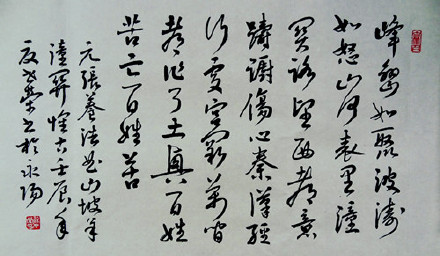 峰巒如聚波濤
如怒山河表裏潼
關路望西都意
躊躇傷心秦漢經
行處宮闕萬間
都作了土興百姓
苦亡百姓苦
元張養浩曲山坡羊
潼關懷古壬辰年
夏書於永陽